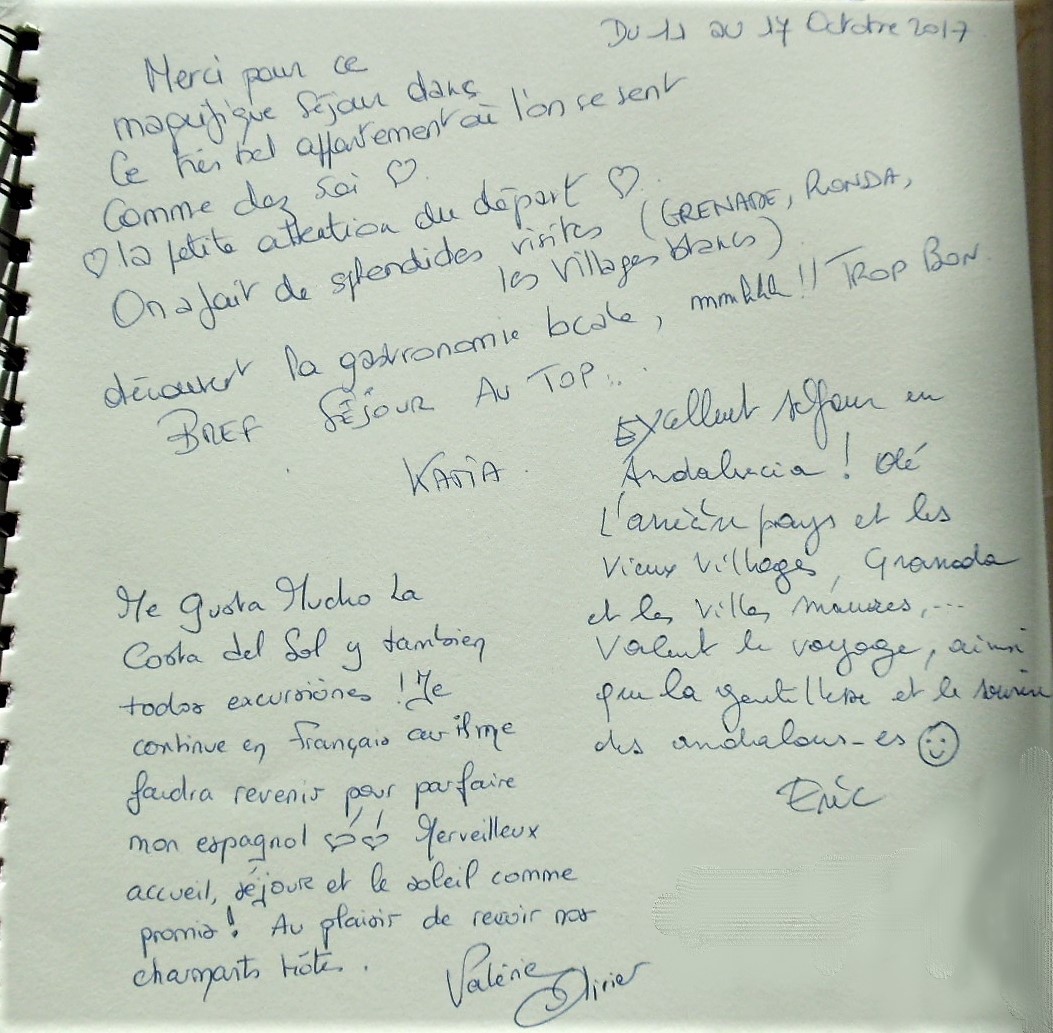 Du 11 au 17 Octobre 2017
Merci pour ce
magnifique séjour dans
Ce très bel appartement où l'on se sent
Comme chez soi ♡
♡ la petite attention du départ ♡
On a fait de splendides visites (GRENADE, RONDA,
les villages blancs)
découvert la gastronomie locale, mmhhh!! TROP BON
BREF SÉJOUR AU TOP...
KATIA
Excellent séjour en
Andalucia ! Olé
L'arrière pays et les
vieux villages, Granada
et les villes maures,...
Valent le voyage, ainsi
que la gentillesse et le sourire
des andalous-es ☺
Eric
Me gusta Mucho La
Costa del Sol y tambien
todos excursiónes ! Je
continue en français car il me
faudra revenir pour parfaire
mon espagnol ♡♡ Merveilleux
accueil, séjour et le soleil comme
promis ! Au plaisir de revoir nos
charmants hôtes.
Valérie Olivier